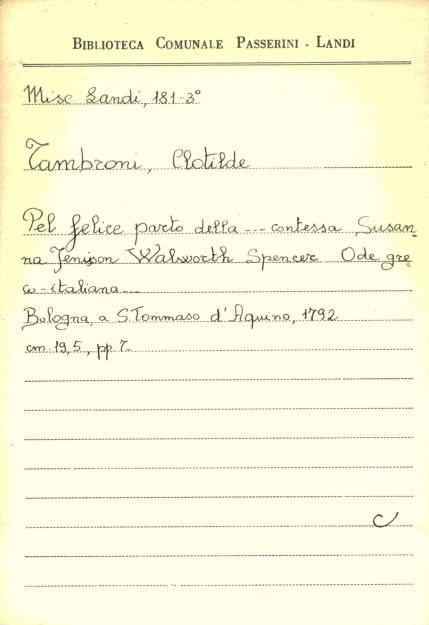 BIBLIOTECA COMUNALE PASSERINI - LANDI
Misc Landi, 181-3°
Tambroni, Clotilde
Pel felice parto della --- contessa Susan=
na Jenison Walsworth Spencer Ode gre=
co-italiana ---
Bologna, a S. Tommaso d'Aquino, 1792
cm. 19,5, pp 7-
C